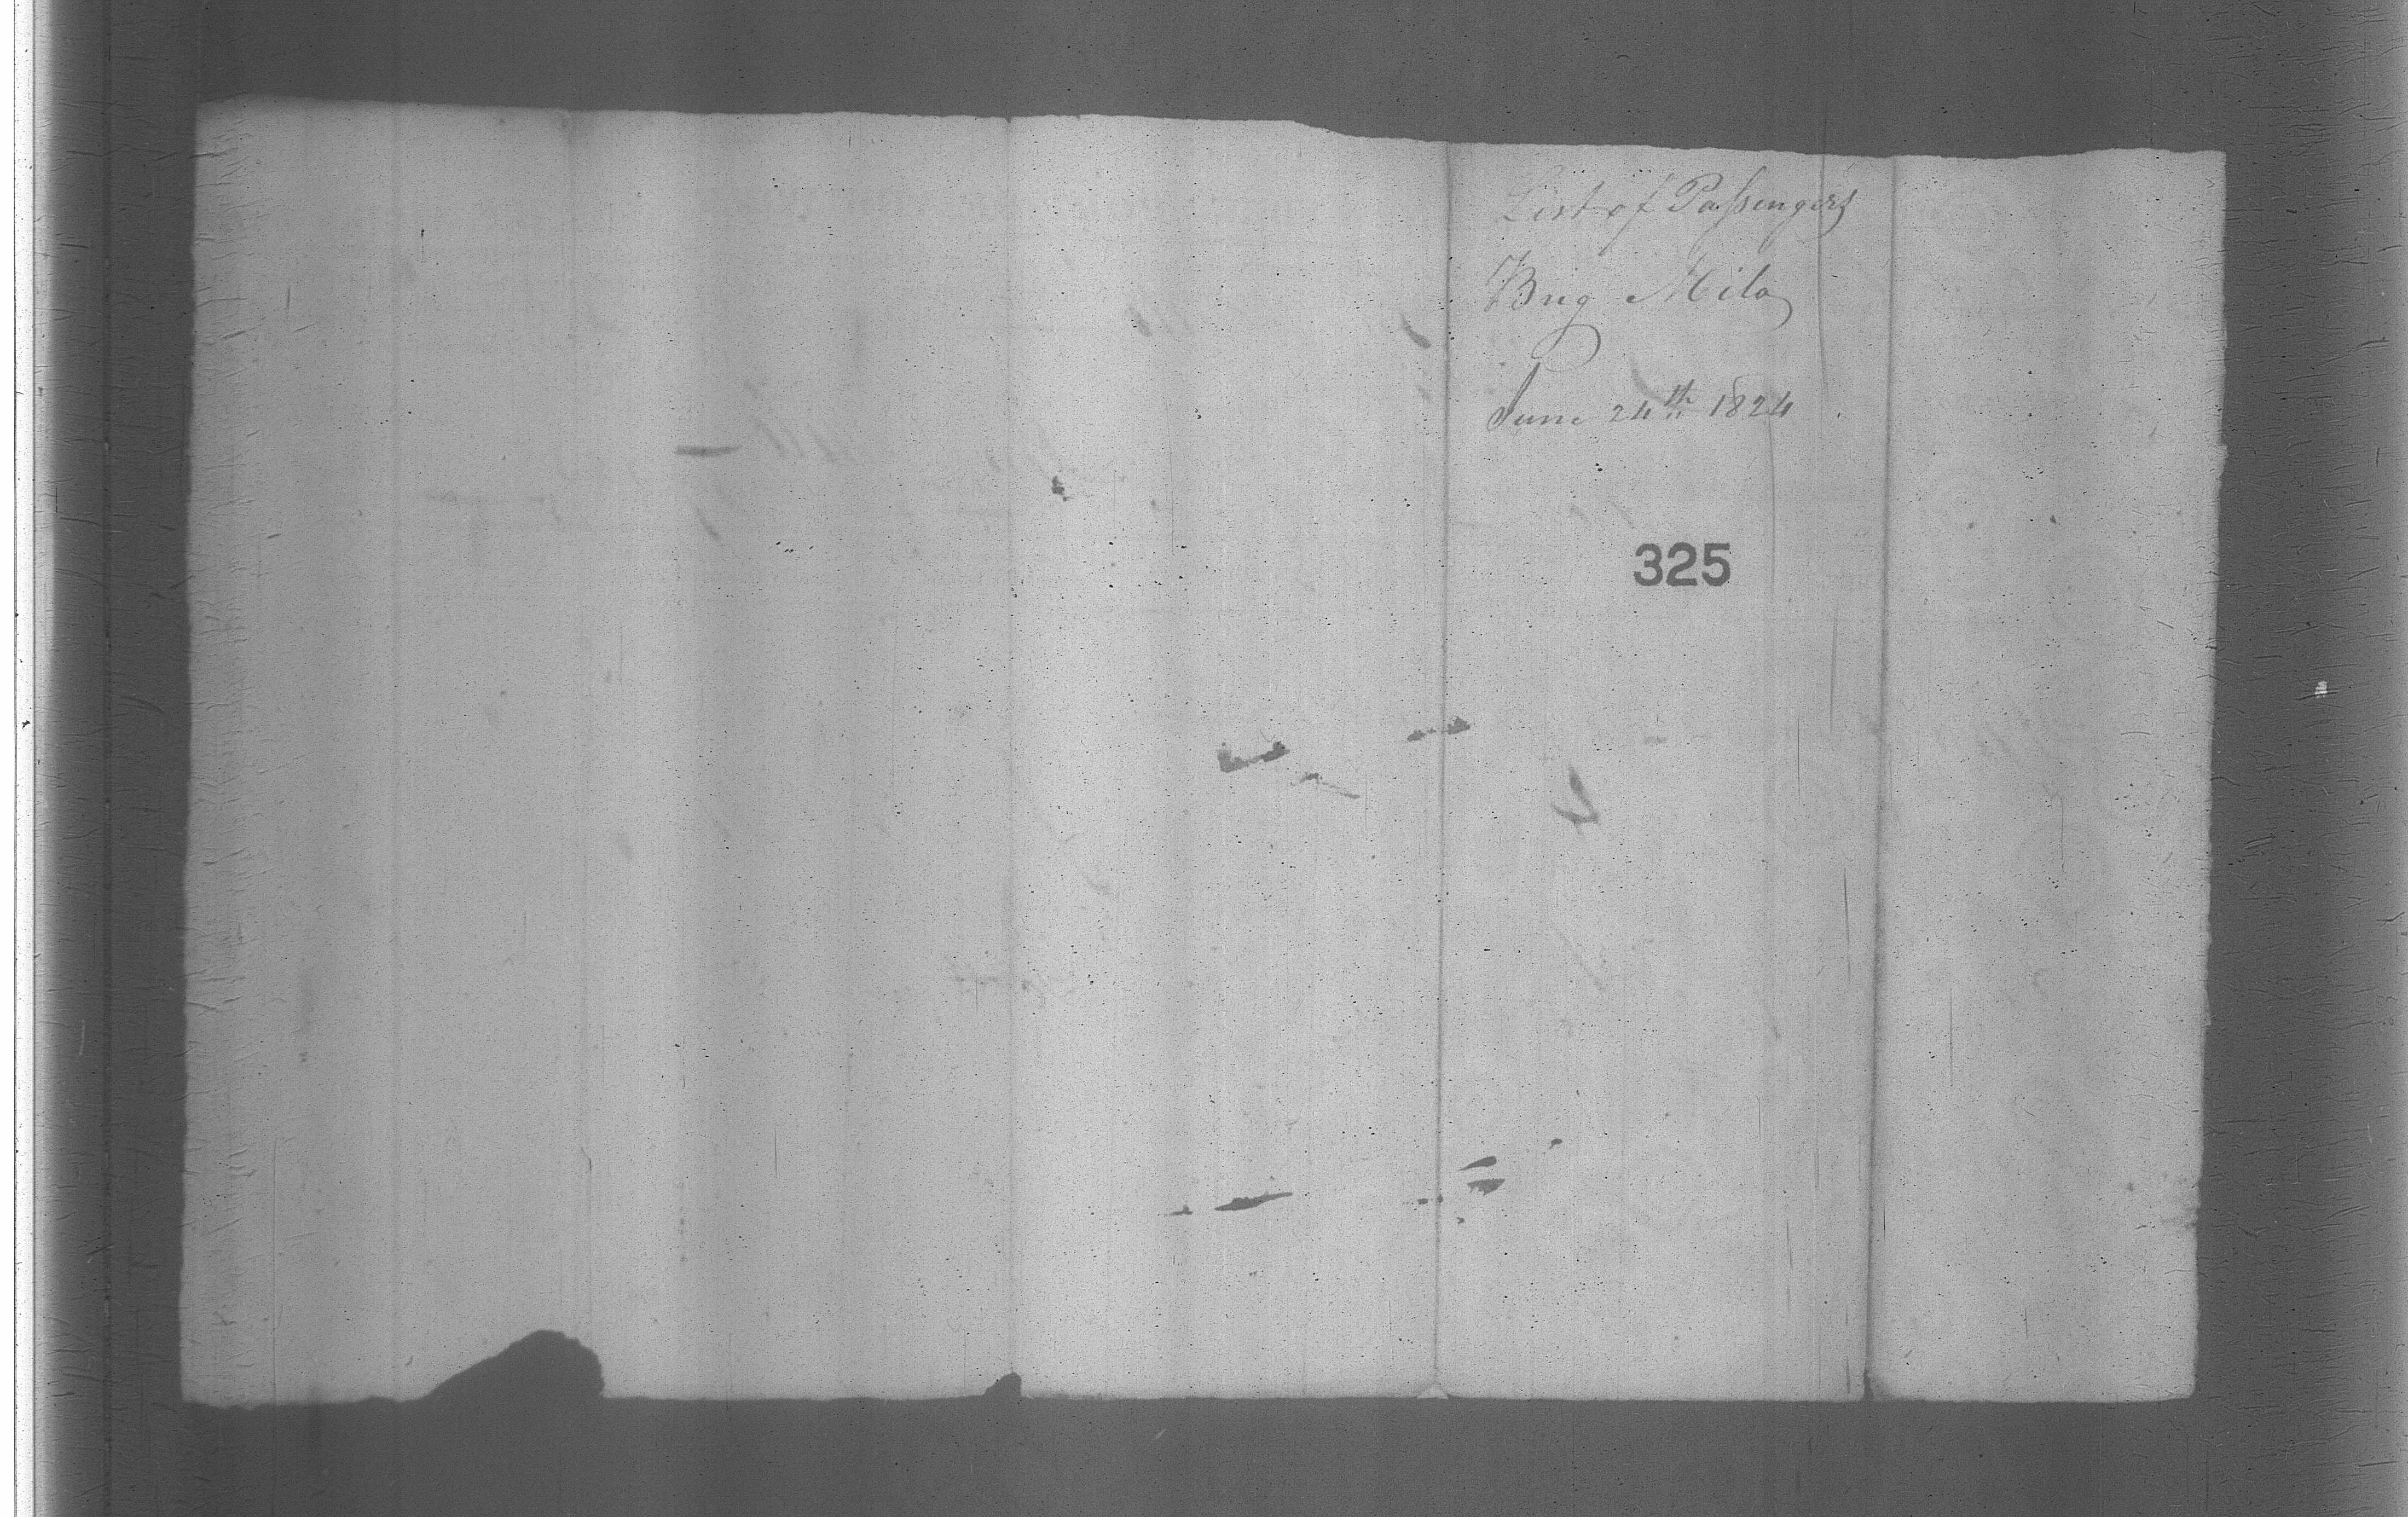 List of Passengers
Brig Milo
June 24th 1824
325